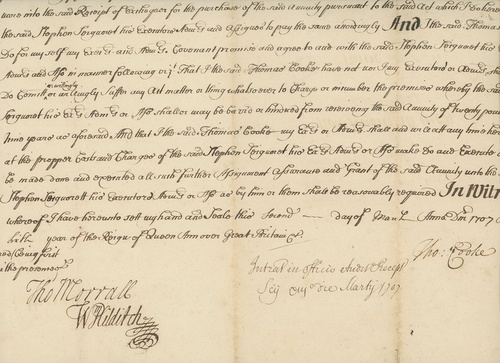 into the said Receipt of Exchequer for the purchase of the said Annuity pursuant to the said Act which I
the said Stephen Sergenot his Executors Admrs and Assignes to pay the same accordingly And I the said Thomas
Do for my self my Execrs and Admrs Covenant promise and agree to and with the said Stephen Sergenot his
Admrs and Ass in manner following vizt That I the said Thomas Cooke have not nor my Executors or Admrs
Do Comitt or wittingly Suffer any Act matter or thing whatsoever to Charge or incumber the premises whereby the said
Sergenot his Execrs Admrs or Ass shall or may be barrd or hindred from receiving the said Annuity of twenty
nine years as aforesaid And that I the said Thomas Cooke my Execrs or Admrs shall and will att any time
at the propper Costs and Charges of the said Stephen Sergenot his Execrs Admrs or Ass make Do and Execute
be made done and executed all such further Assignment Assurance and Grant of the said Annuity unto the
Stephen Sergenot his Executors Admrs or Ass as by him or them shall be reasonably required In Witn
whereof I have hereunto sett my hand and Seale this Second day of March Anno Dni 1707
sixth year of the Reign of Queen Ann over Great Britain &c
being first
the presence of
Tho: Cooke
Intrat in Officio Audit Recept
Martij 1707
Tho Morrall
W Hilditch